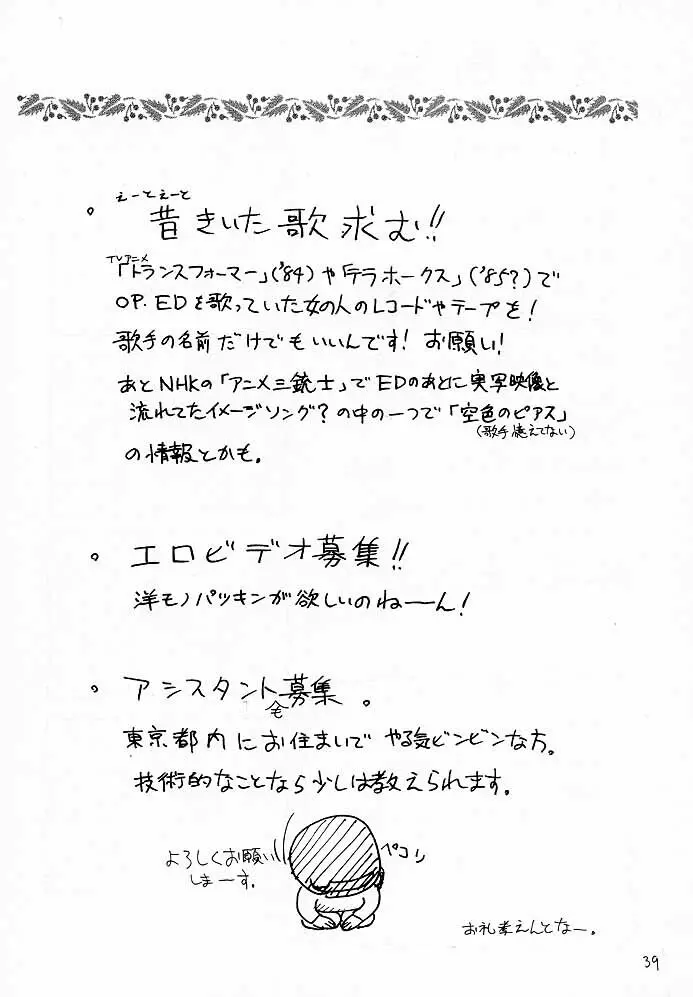 えーとえーと
。昔きいた歌求む!!
TVアニメ
「トランスフォーマー」('84)や「テラホークス」('85?)で
OP. EDを歌っていた女の人のレコードやテープを!
歌手の名前だけでもいいんです! お願い!
あとNHKの「アニメ三銃士」でEDのあとに実写映像と
流れてたイメージソング?の中の一つで「空色のピアス」
(歌手憶えてない)
の情報とかも。
。エロビデオ募集!!
洋モノパツキンが欲しいのねーーん!
。アシスタント募集。
東京都内にお住まいで やる気ビンビンな方。
技術的なことなら少しは教えられます。
よろしくお願い
しまーす。
ペコリ
お礼考えんとなー。
39